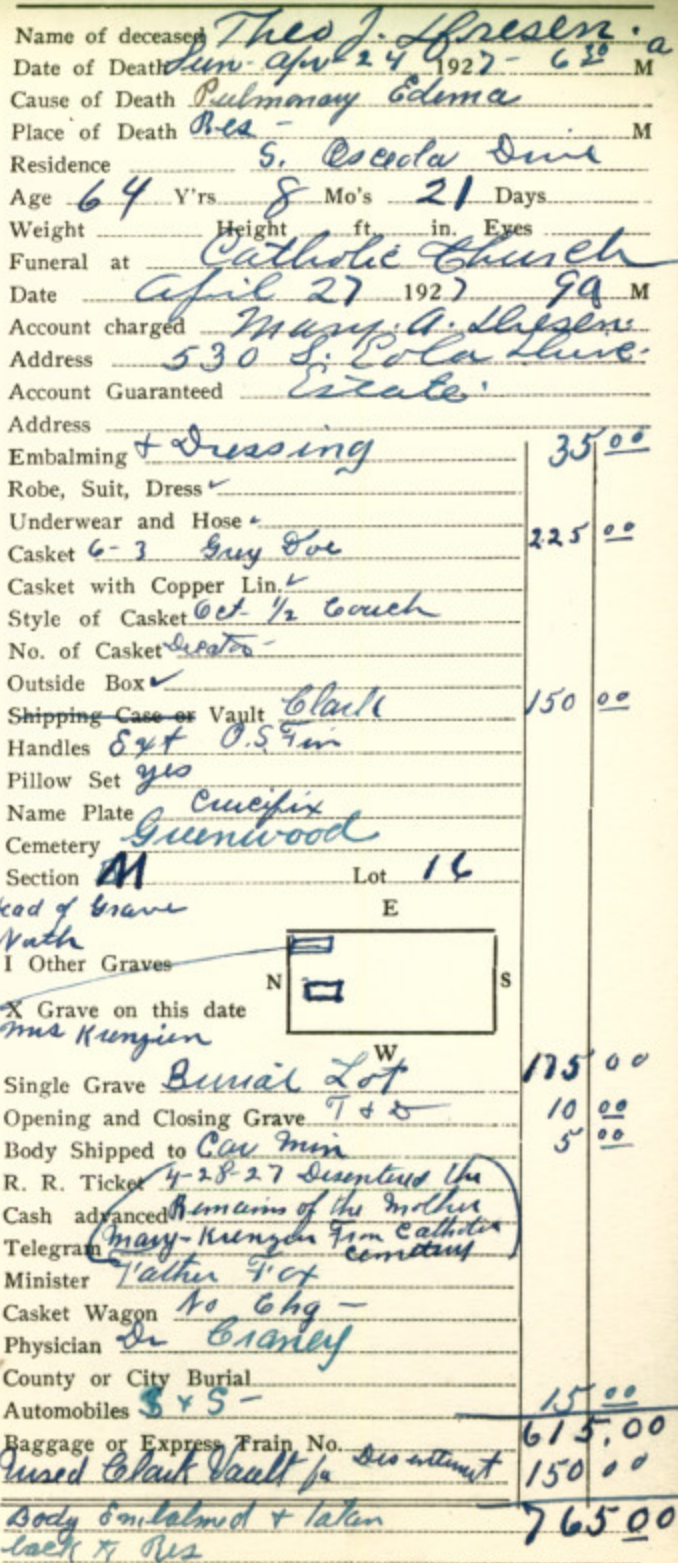 Name of deceased Theo J. Dresen.
Date of Death Sun- Apr- 24 1927- 6 30 a M
Cause of Death Pulmonary Edema
Place of Death Res- M
Residence S. Osceola Drive
Age 64 Y'rs 8 Mo's 21 Days
Weight Height ft. in. Eyes
Funeral at Catholic Church
Date April 27 1927 9 a M
Account charged Mary. A. Dresen.
Address 530 S. Eola Drive.
Account Guaranteed Estate.
Address
Embalming + Dressing 35 00
Robe, Suit, Dress ✓
Underwear and Hose
Casket 6-3 Grey Doe 225 00
Casket with Copper Lin. ✓
Style of Casket Oct- 1/2 Couch
No. of Casket
Outside Box ✓
Shipping Case or Vault Clark 150 00
Handles Ext O.S. Fin
Pillow Set yes
Name Plate Crucifix
Cemetery Greenwood
Section M Lot 16
Head of Grave
North
I Other Graves
E
N S
X Grave on this date
Mrs Krenzien
W
Single Grave Burial Lot 175 00
Opening and Closing Grave T & D 10 00
Body Shipped to Car Min 5 00
R. R. Ticket 4-28-27 Disentered the
Cash advanced Remains of the Mother
Telegram Mary-Krenzien From Catholic
cemetery
Minister Father Fox
Casket Wagon No Chg -
Physician Dr
County or City Burial
Automobiles S & S - 15 00
Baggage or Express Train No. 615.00
used Clark Vault for Disenterment 150 00
Body Embalmed & taken 765 00
back to Res